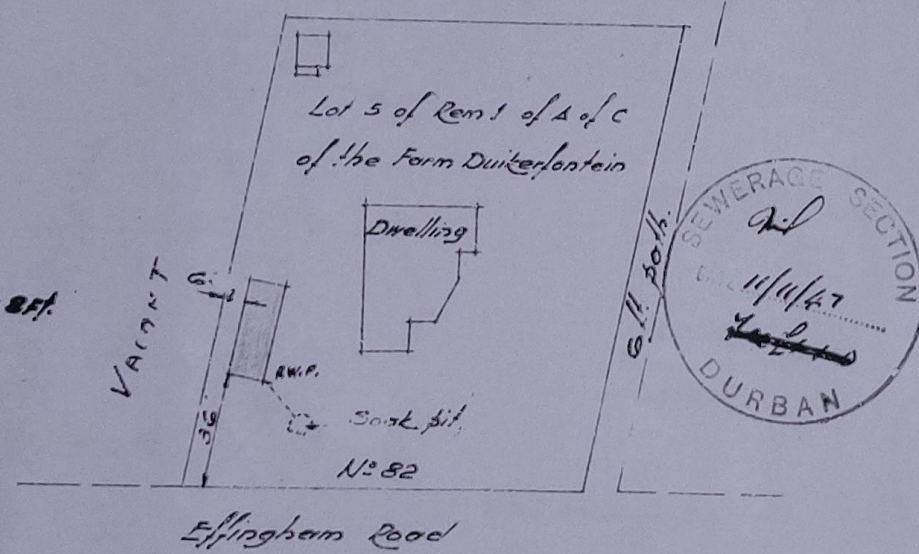 Lot 5 of Rem 1 of A of C
of the Farm Duikerfontein
Dwelling
6'
8Ft.
VACANT
R.W.P.
36'
Soak pit.
No 82
6 ft. path.
Effingham Road
SEWERAGE SECTION
11/11/47
DURBAN